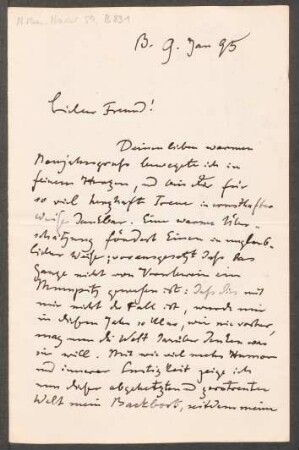 B. 9. Jan 95
Lieber Freund!
Deinen lieben warmen
Neujahrsgruß bewege ich in
feinem Herzen, und bin Dir für
so viel herzhafte Treue in
Weise dankbar. Eine warme Über-
schätzung fördert Einen in unglaub-
licher Weise, vorausgesetzt daß das
Ganze nicht von Vornherein ein
Mumpitz gewesen ist: daß dies mit
mir nicht der Fall ist, werde mir
in diesem Jahr so klar, wie nie vorher,
mag nun die Welt darüber denken was
sie will. Mit wie viel mehr Humor
und innerer Lustigkeit zeige ich
nun dieser abgehetzten und
Welt mein Backbord, seitdem meine